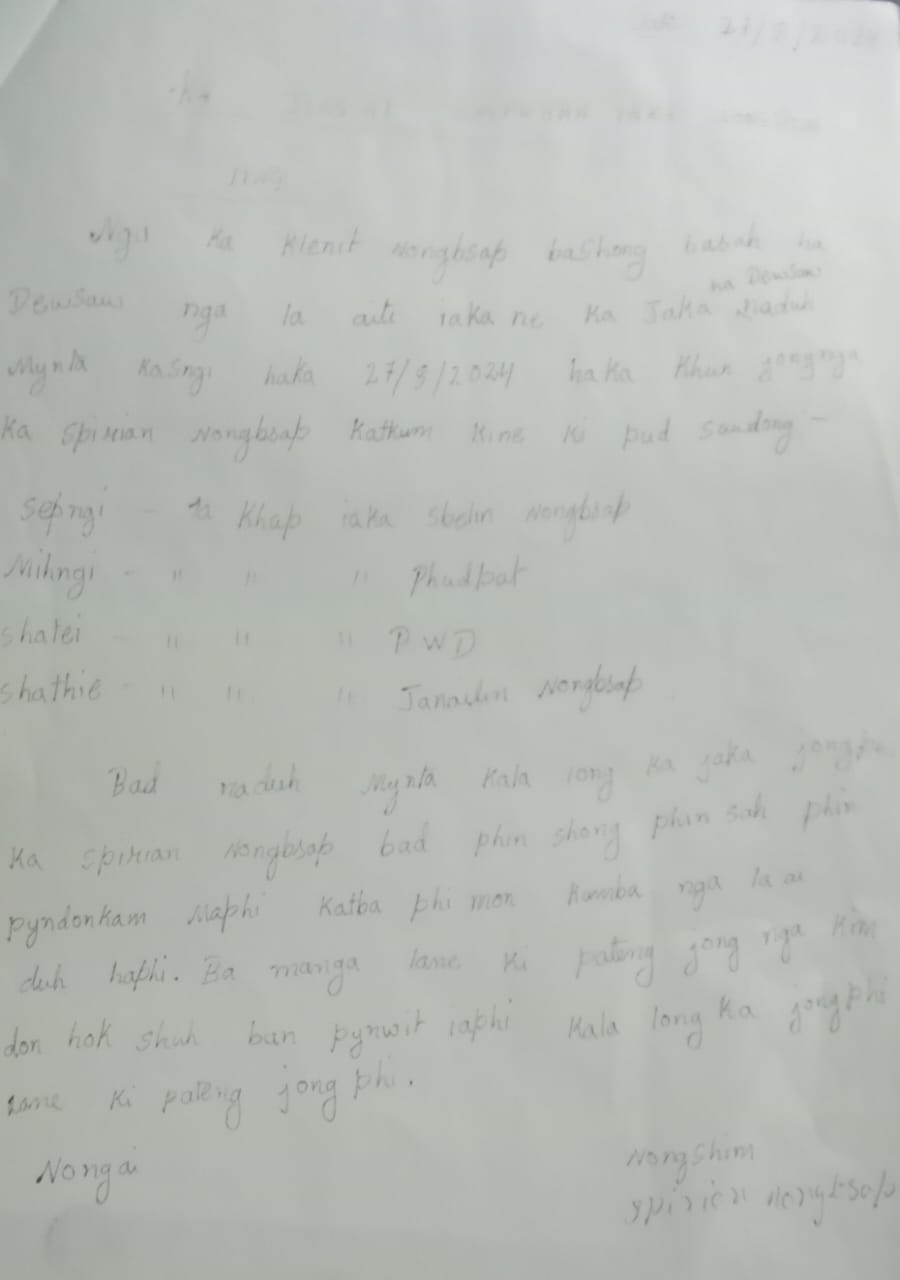 27/3/2024
Ka
Nga Ka Klenit Nongbsap bashong basah ha
na Dewsaw
Dewsaw nga la aiti iaka ne Ka Jaka naduh
Mynta Kasngi haka 27/3/2024 haka Khun jongnga
Ka Spirian Nongbsap Katkum Kine Ki pud sawdong -
Sepngi - Ka Khap iaka Sbelin Nongbsap
Mihngi - " " " Phudbat
shatei - " " " PWD
shathie - " " " Nongbsap
Bad naduh Mynta Kala long ka jaka jongphi
Ka Spirian Nongbsap bad phin shong phin sah phin
pyndonkam Maphi Katba phi mon Kumba nga la ai
duh haphi. Ba manga lane Ki pateng jong nga Kim
don hok shuh ban pynwit iaphi Kala long Ka jongphi
Lane Ki pateng jong phi.
Nongai
Nongshim
Spirian Nongbsap